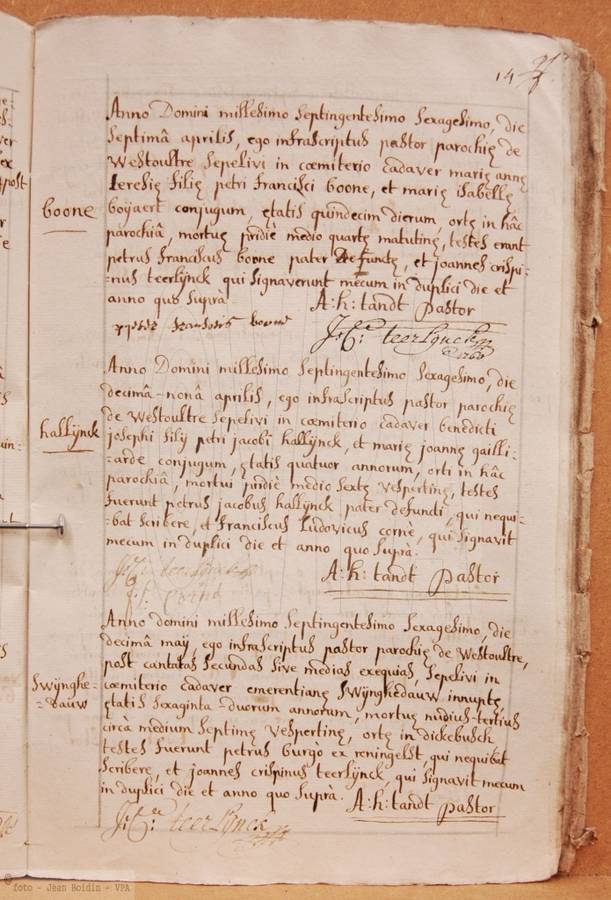 14
Anno Domini millesimo Septingentesimo Sexagesimo, die
Septimâ aprilis, ego infrascriptus pastor parochię de
Westoultre Sepelivi in cœmiterio cadaver marię annę
teresię filię petri francisci boone, et marię isabellę
boone
boijaert conjugum, ętatis quindecim dierum, ortę in hâc
parochiâ, mortuę pridiè medio quartę matutinę, testes erant
petrus franciscus boone pater defunctę, et joannes crispi-
-nus teerlijnck qui signaverunt mecum in duplici die et
anno quo Suprà
A: h: tandt pastor
petrus boone
J: C: teerlijnck
1760
Anno Domini millesimo Septingentesimo Sexagesimo, die
decimâ-nonâ aprilis, ego infrascriptus pastor parochię
de Westoultre Sepelivi in cœmiterio cadaver benedicti
hallijnck
josephi filij petri jacobi hallijnck, et marię joannę gailli-
-arde conjugum, ętatis quatuor annorum, orti in hâc
parochiâ, mortui pridiè medio sextę vespertinę, testes
fuerunt petrus jacobus hallijnck pater defuncti, qui nequi-
-bat scribere, et franciscus ludovicus cornè, qui signavit
mecum in duplici die et anno quo Suprà.
A: h: tandt pastor
Anno domini millesimo Septingentesimo Sexagesimo, die
decimâ maij, ego infrascriptus pastor parochię de Westoultre,
post cantatas secundas sive medias exequias, Sepelivi in
Swijnghe-
-dauw
cœmiterio cadaver emerentianę Swijnghedauw innuptę
ętatis sexaginta duorum annorum, mortuę nudius-tertius
circà medium septimę vespertinę, ortę in dickebusch
testes fuerunt petrus burgo ex reningelst, qui nequibat
scribere, et joannes crispinus teerlijnck, qui signavit mecum
in duplici die et anno quo Suprà.
A: h: tandt pastor
J: C: teerlijnck
© foto - Jean Boidin - VPA